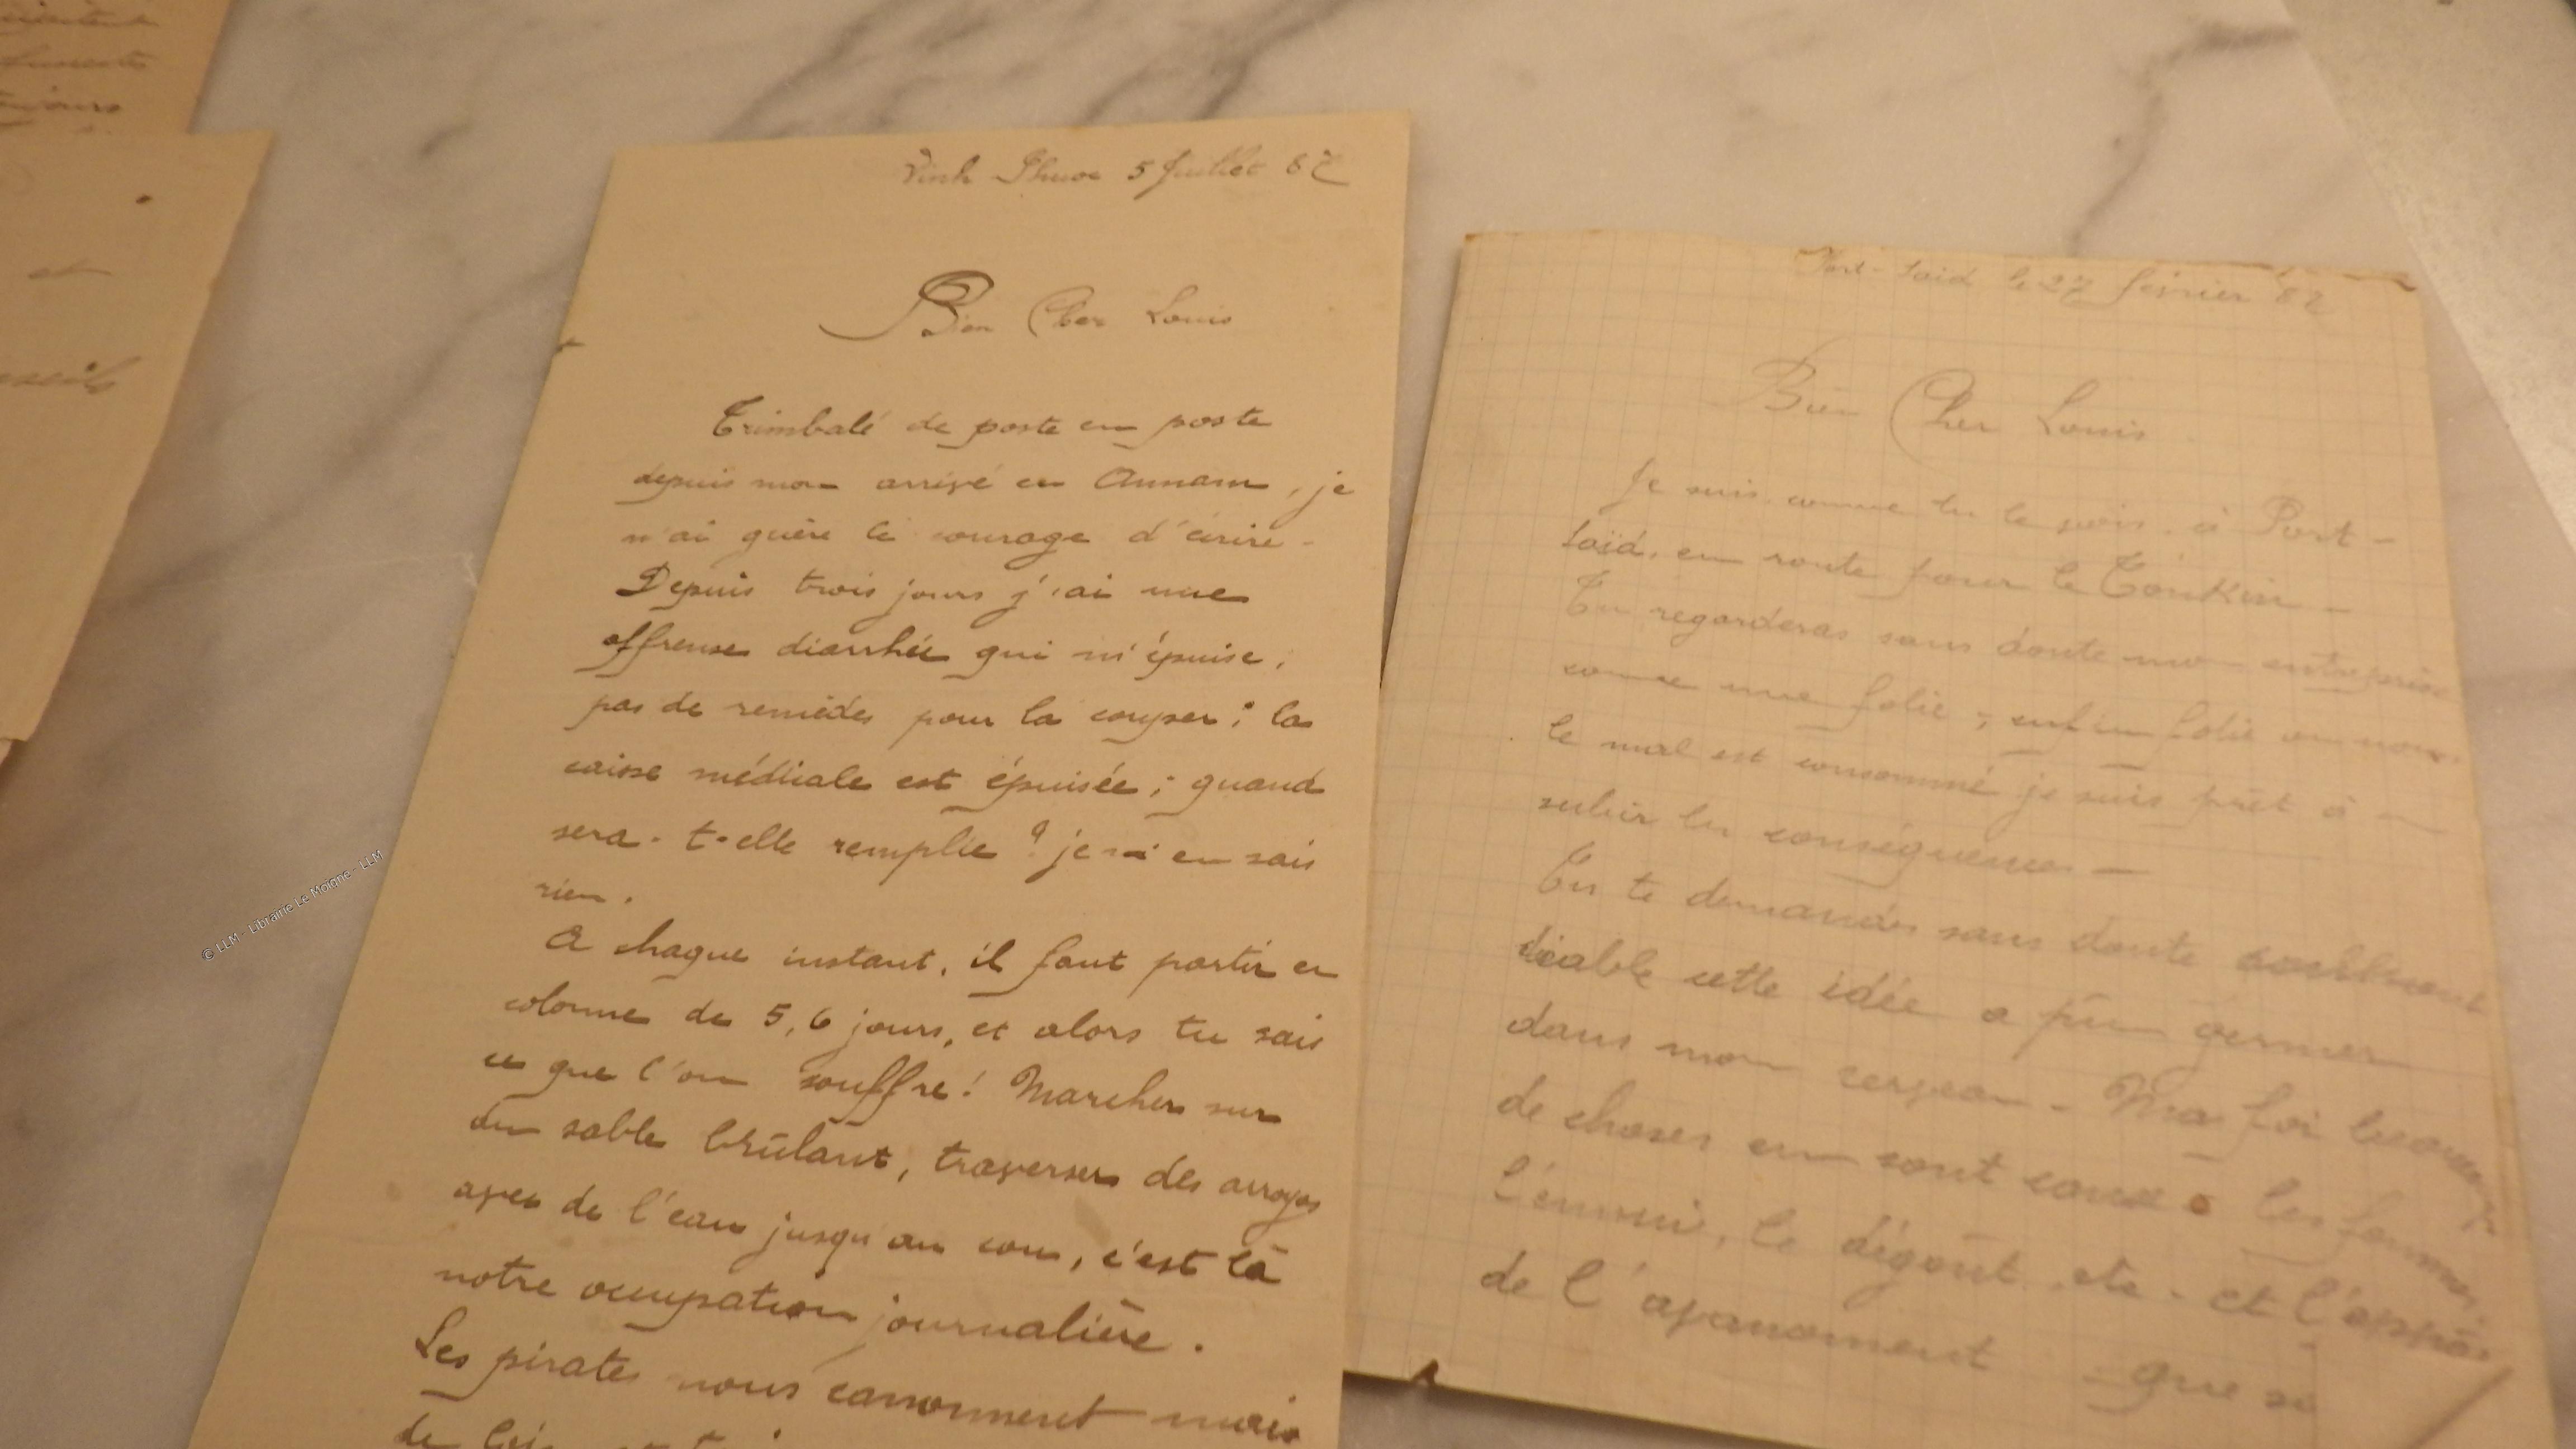 et
Vinh Phuoc 5 Juillet 87
Bien Cher Louis
Trimbalé de poste en poste
depuis mon arrivé en Annam, je
n'ai guère le courage d'écrire -
Depuis trois jours j'ai une
affreuse diarrhée qui m'épuise,
pas de remèdes pour la couper ; la
caisse médicale est épuisée ; quand
sera-t-elle remplie ? je n'en sais
rien.
A chaque instant, il faut partir en
colonne de 5, 6 jours, et alors tu sais
ce que l'on souffre ! Marcher sur
du sable brûlant, traverser des arroyos
avec de l'eau jusqu'au cou, c'est là
notre occupation journalière.
Les pirates nous canonnent mais
de loin
Port-Saïd le 27 février 87
Bien Cher Louis
Je suis comme tu le vois, à Port-
Saïd, en route pour le Tonkin -
Tu regarderas sans doute mon entreprise
comme une folie ; enfin folie ou non
le mal est consommé je suis prêt à
subir les conséquences -
Tu te demandes sans doute comment
diable cette idée a pu germer
dans mon cerveau - Ma foi beaucoup
de choses en sont cause : les femmes,
l'ennui, le dégoût, etc - et l'appât
de l'avancement que
© LLM - Librairie Le Moigne - LLM